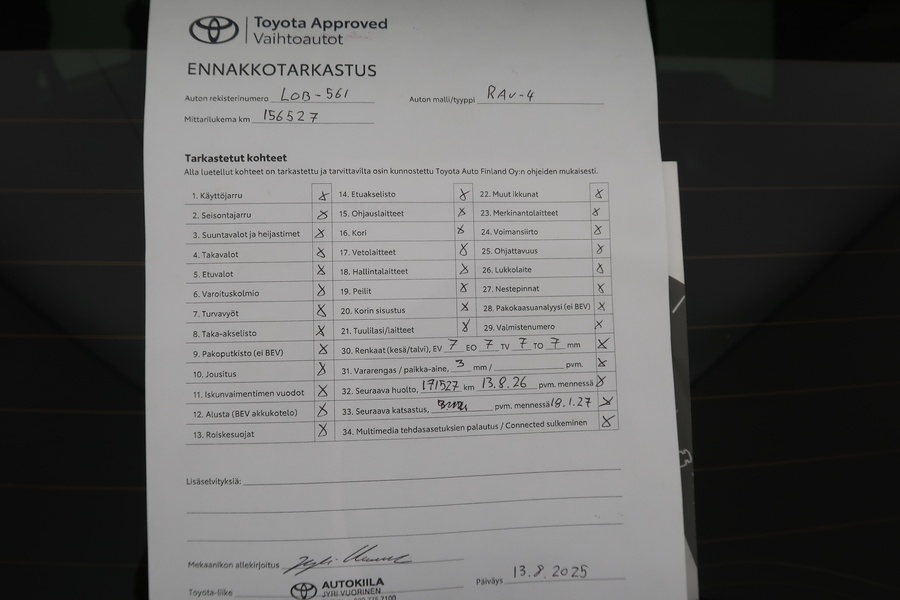 Toyota Approved
Vaihtoautot
ENNAKKOTARKASTUS
Auton rekisterinumero LOB-561 Auton malli/tyyppi RAV-4
Mittarilukema km 156527
Tarkastetut kohteet
Alla luetellut kohteet on tarkastettu ja tarvittavilta osin kunnostettu Toyota Auto Finland Oy:n ohjeiden mukaisesti.
1. Käyttöjarru X 14. Etuakselisto X 22. Muut ikkunat X
2. Seisontajarru X 15. Ohjauslaitteet X 23. Merkinantolaitteet X
3. Suuntavalot ja heijastimet X 16. Kori X 24. Voimansiirto X
4. Takavalot X 17. Vetolaitteet X 25. Ohjattavuus X
5. Etuvalot X 18. Hallintalaitteet X 26. Lukkolaite X
6. Varoituskolmio X 19. Peilit X 27. Nestepinnat X
7. Turvavyöt X 20. Korin sisustus X 28. Pakokaasuanalyysi (ei BEV) X
8. Taka-akselisto X 21. Tuulilasi/laitteet X 29. Valmistenumero X
9. Pakoputkisto (ei BEV) X 30. Renkaat (kesä/talvi), EV 7 EO 7 TV 7 TO 7 mm X
10. Jousitus X 31. Vararengas / paikka-aine, 3 mm / pvm. X
11. Iskunvaimentimien vuodot X 32. Seuraava huolto, 171527 km 13.8.26 pvm. mennessä X
12. Alusta (BEV akkukotelo) X 33. Seuraava katsastus, pvm. mennessä 18.1.27 X
13. Roiskesuojat X 34. Multimedia tehdasasetuksien palautus / Connected sulkeminen X
Lisäselvityksiä:
Mekaanikon allekirjoitus
Toyota-liike AUTOKIILA Päiväys 13.8.2025
JYRI VUORINEN